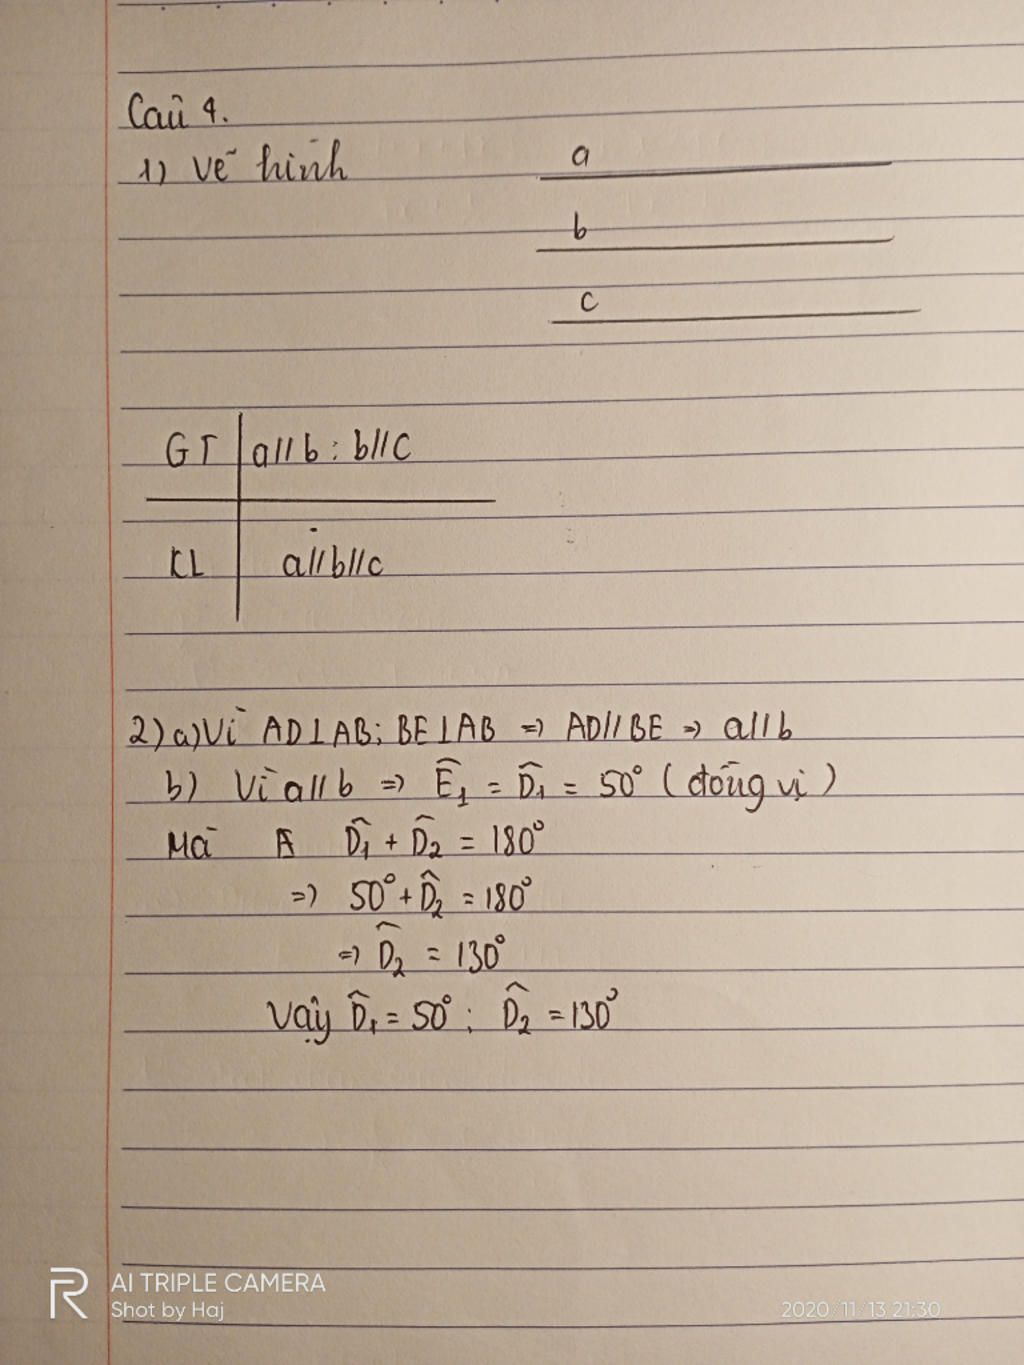 Câu 4.
1) Vẽ hình
a
b
c
GT a//b ; b//c
KL a//b//c
2) a) Vì AD⊥AB; BE⊥AB => AD//BE => a//b
b) Vì a//b => Ê₁ = D̂₁ = 50° (đồng vị)
Mà D̂₁ + D̂₂ = 180°
=> 50° + D̂₂ = 180°
=> D̂₂ = 130°
Vậy D̂₁ = 50° ; D̂₂ = 130°
AI TRIPLE CAMERA
Shot by Haj
2020/11/13 21:30